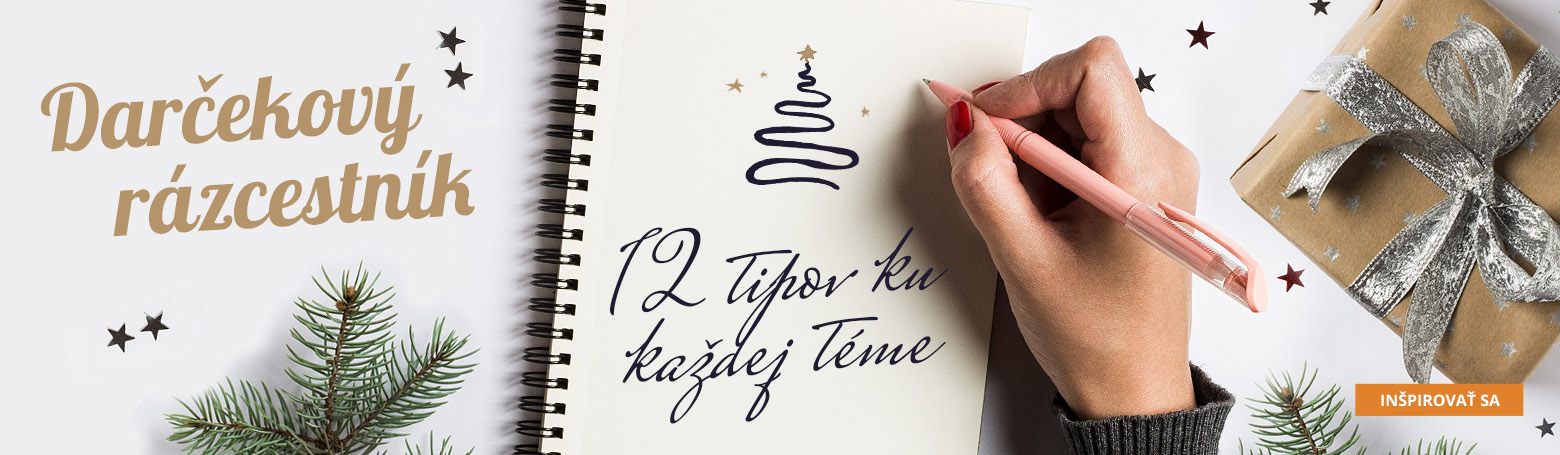 Darčekový
rázcestník
12 tipov ku
každej téme
INŠPIROVAŤ SA